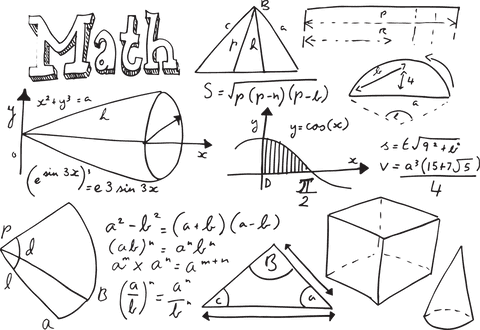 Math
B
c p l a
S = √p(p-n)(p-b)
P
R
b 4
a
l
y
x² + y³ = a
h
o x
(e sin 3x)' = e 3 sin 3x
y
y = cos(x)
x
D π/2
s = t√9² + b²
V = a³(15+7√5)/4
p d
l
a B
a² - b² = (a+b)(a-b)
(ab)ⁿ = aⁿbⁿ
aᵐ × aⁿ = aᵐ⁺ⁿ
(a/b)ⁿ = aⁿ/bⁿ
B
c a